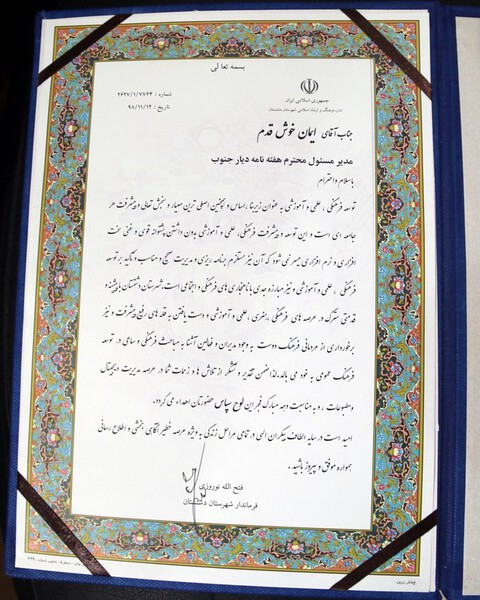 بسمه تعالی
شماره : ۲۶۲۷/۱/۷۷۶۴
تاریخ : ۹۸/۱۱/۱۲
جمهوری اسلامی ایران
اداره فرهنگ و ارشاد اسلامی شهرستان دشتستان
جناب آقای ایمان خوش قدم
مدیر مسئول محترم هفته نامه دیار جنوب
با سلام و احترام
توسعه فرهنگی ، علمی و آموزشی به عنوان زیربنا ، اساس و همچنین اصلی ترین معیار و سنجش تعالی و پیشرفت هر
جامعه ای است و این توسعه و پیشرفت فرهنگی ، علمی و آموزشی بدون داشتن پشتوانه قوی و غنی سخت
افزاری و نرم افزاری میسر نمی شود که آن نیز مستلزم برنامه ریزی و مدیریت صحیح و مناسب و تأکید بر توسعه
فرهنگی ، علمی و آموزشی و نیز مبارزه جدی با ناهنجاری های فرهنگی و اجتماعی است. شهرستان دشتستان با پیشینه و
قدمتی سترگ در عرصه های فرهنگی ، هنری ، علمی و آموزشی و دست یافتن به قله های رفیع پیشرفت و نیز
برخورداری از مردمانی فرهنگ دوست به وجود مدیران و فعالین آشنا به مباحث فرهنگی و ساعی در توسعه
فرهنگ عمومی به خود می بالد. لذا ضمن تقدیر و تشکر از تلاش ها و زحمات شما در عرصه مدیریت دیجیتال
و مطبوعات ، و به مناسبت دهه مبارک فجر این لوح سپاس حضورتان اهداء می گردد.
امید است در سایه الطاف بیکران الهی در تمامی مراحل زندگی به ویژه عرصه خطیر آگاهی بخشی و اطلاع رسانی
همواره موفق و پیروز باشید .
فتح الله نوروزی
فرماندار شهرستان دشتستان